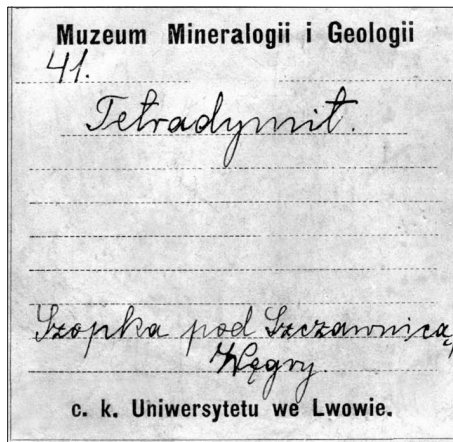 Muzeum Mineralogii i Geologii
41.
Tetradymit.
Szopka pod Szczawnicą,
Węgry.
c. k. Uniwersytetu we Lwowie.